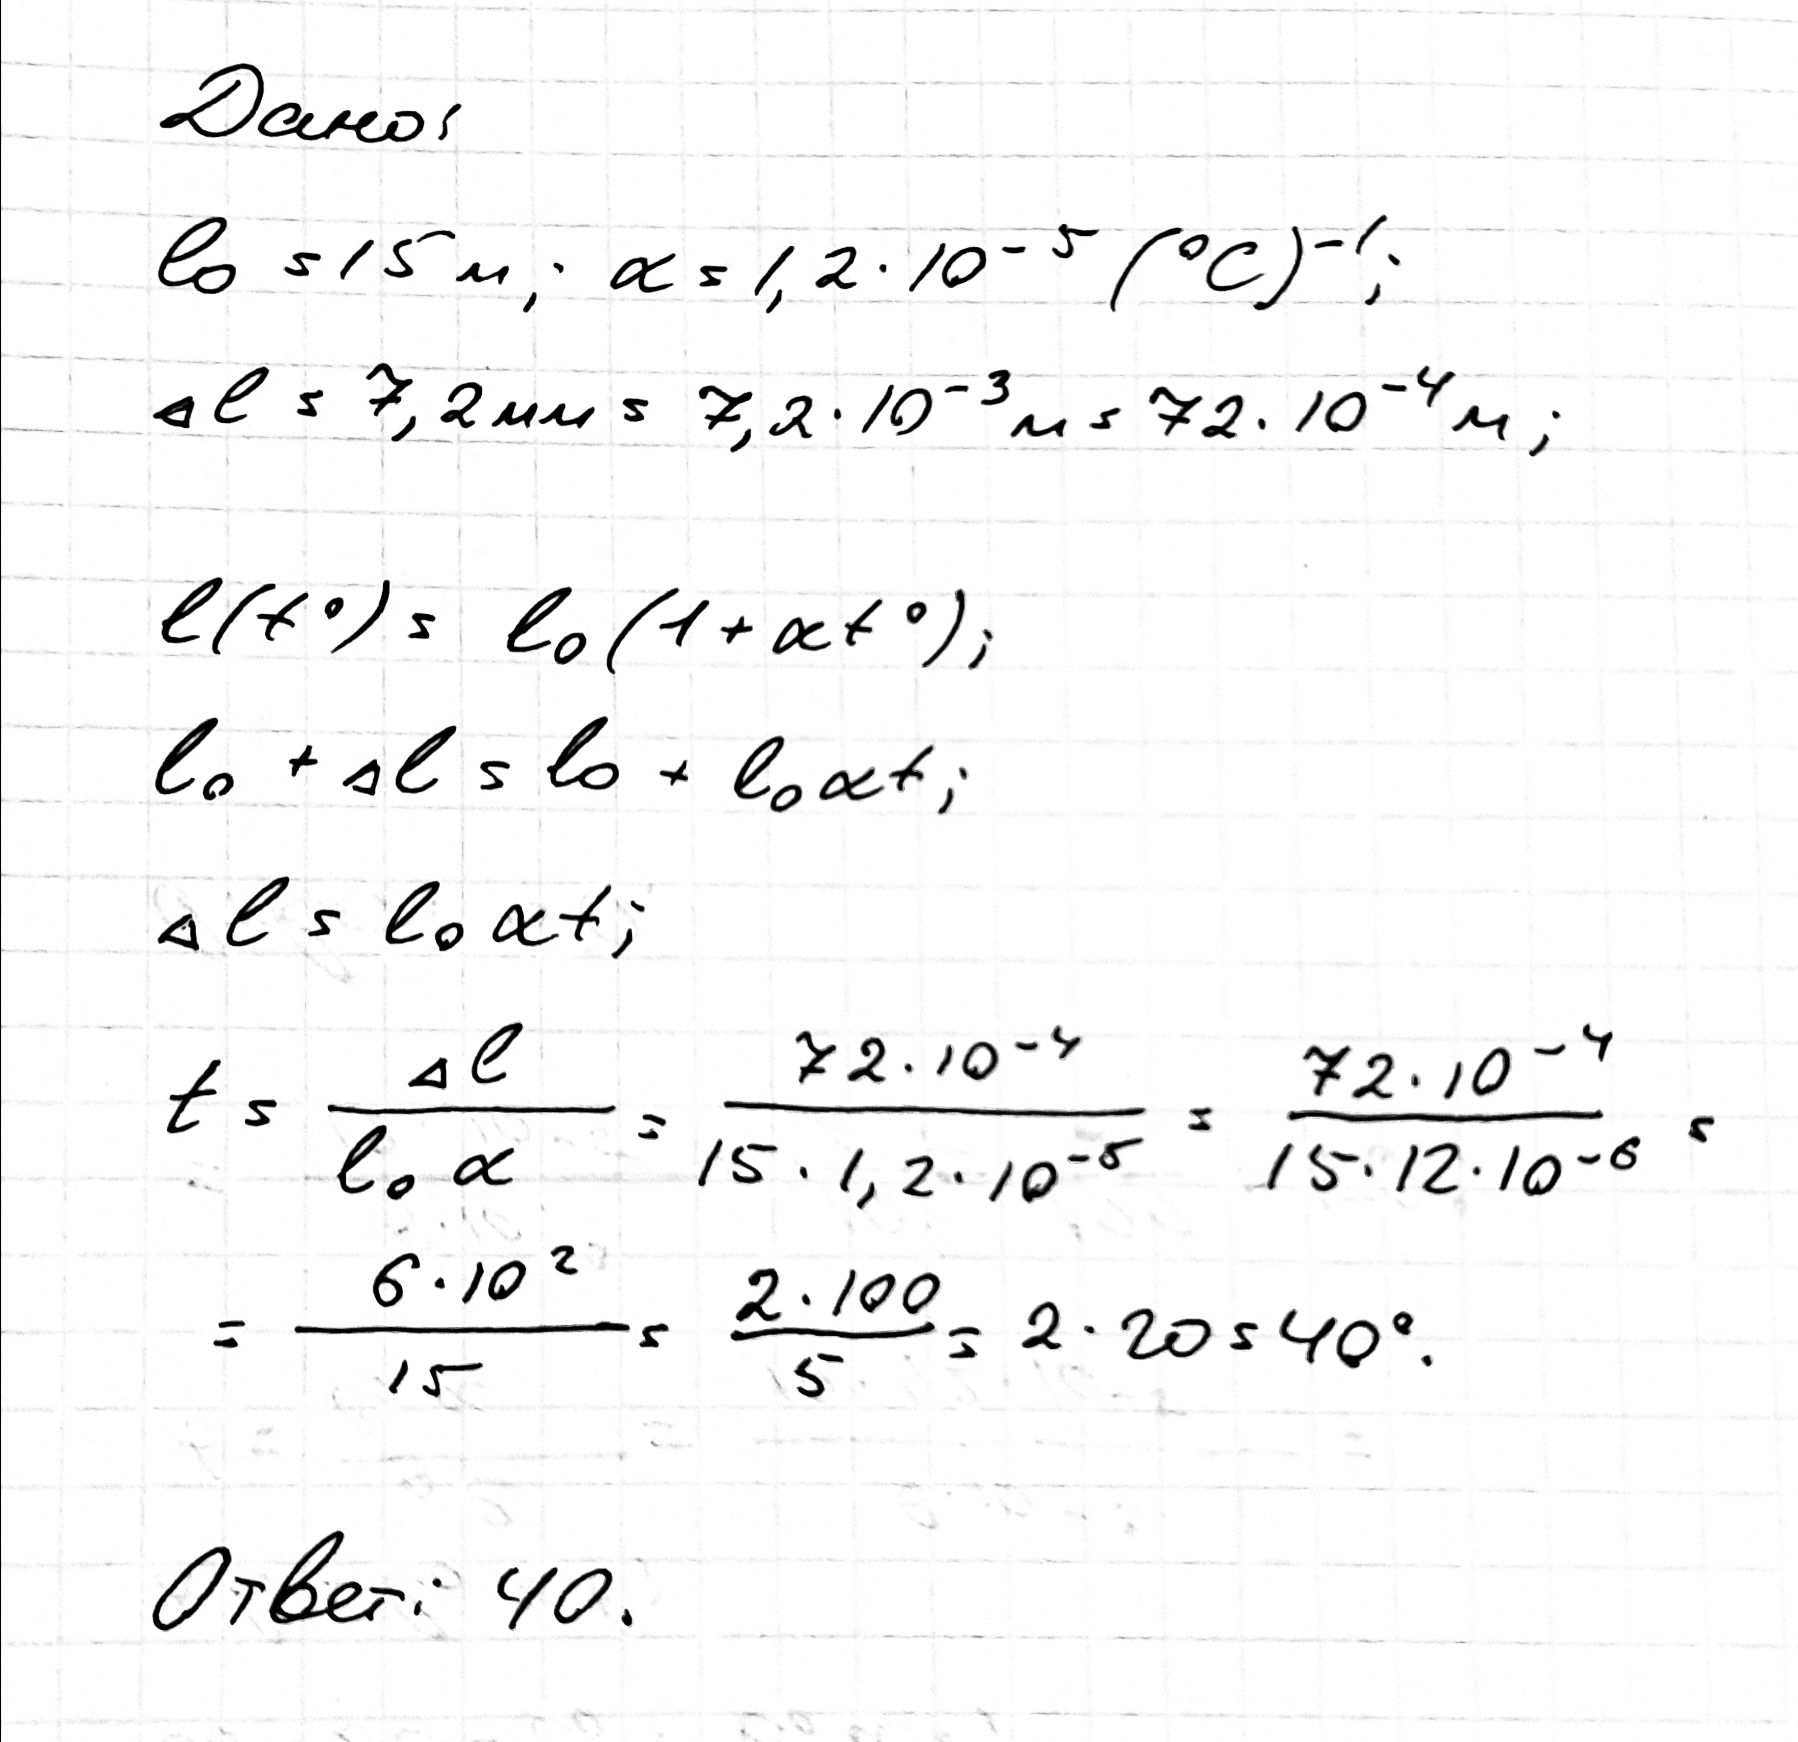 Дано:
l₀ = 15 м; α = 1,2 · 10⁻⁵ (°C)⁻¹;
Δl = 7,2 мм = 7,2 · 10⁻³ м = 72 · 10⁻⁴ м;
l(t°) = l₀(1 + αt°);
l₀ + Δl = l₀ + l₀αt;
Δl = l₀αt;
t = Δl / (l₀α) = (72 · 10⁻⁴) / (15 · 1,2 · 10⁻⁵) = (72 · 10⁻⁴) / (15 · 12 · 10⁻⁶) =
= (6 · 10²) / 15 = (2 · 100) / 5 = 2 · 20 = 40°.
Ответ: 40.